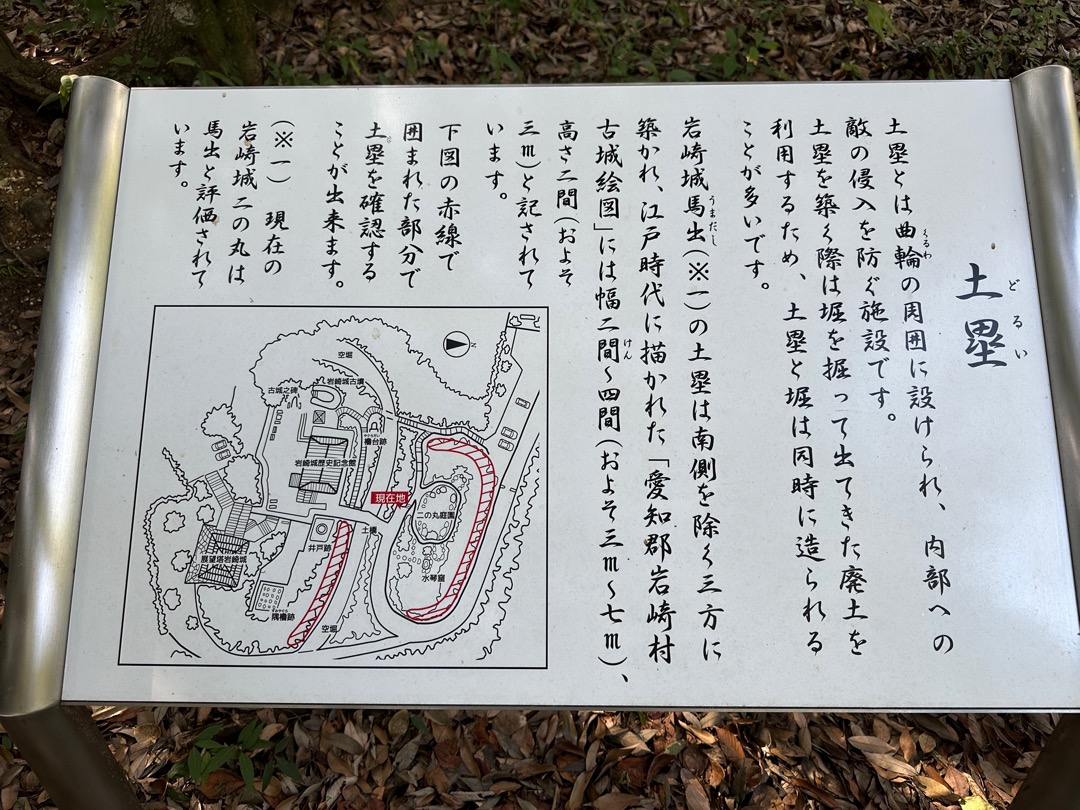 土塁
どるい
土塁とは曲輪の周囲に設けられ、内部への
くるわ
敵の侵入を防ぐ施設です。
土塁を築く際は堀を掘って出てきた廃土を
利用するため、土塁と堀は同時に造られる
ことが多いです。
岩崎城馬出(※一)の土塁は南側を除く三方に
うまだし
築かれ、江戸時代に描かれた「愛知郡岩崎村
古城絵図」には幅二間〜四間(およそ三m〜七m)、
けん
高さ二間(およそ
三m)と記されて
います。
下図の赤線で
囲まれた部分で
土塁を確認する
ことが出来ます。
(※一) 現在の
岩崎城二の丸は
馬出と評価されて
います。
N
空堀
岩崎城古墳
古城之碑
やぐらだい
櫓台跡
岩崎城歴史記念館
現在地
二の丸庭園
土橋
井戸跡
展望塔岩崎城
水琴窟
すみやぐら
隅櫓跡
空堀